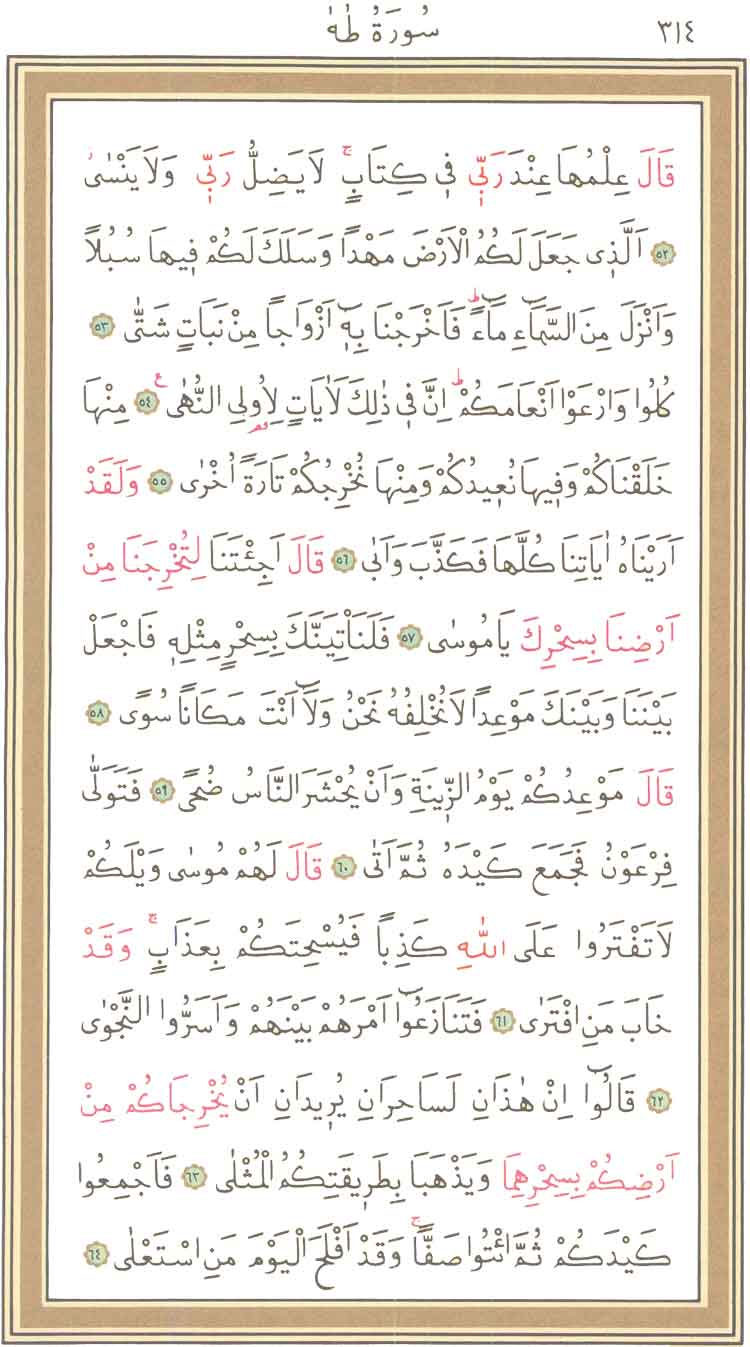 سُورَةُ طٰهٰ ٣١٤
قَالَ عِلْمُهَا عِنْدَ رَبّ۪ي ف۪ي كِتَابٍۚ لَا يَضِلُّ رَبّ۪ي وَلَا يَنْسٰىۘ
﴿٥٢﴾ اَلَّذ۪ي جَعَلَ لَكُمُ الْاَرْضَ مَهْدًا وَسَلَكَ لَكُمْ ف۪يهَا سُبُلًا
وَاَنْزَلَ مِنَ السَّمَٓاءِ مَٓاءًۜ فَاَخْرَجْنَا بِه۪ٓ اَزْوَاجًا مِنْ نَبَاتٍ شَتّٰى ﴿٥٣﴾
كُلُوا وَارْعَوْا اَنْعَامَكُمْۜ اِنَّ ف۪ي ذٰلِكَ لَاٰيَاتٍ لِاُو۬لِي النُّهٰى۟ ﴿٥٤﴾ مِنْهَا
خَلَقْنَاكُمْ وَف۪يهَا نُع۪يدُكُمْ وَمِنْهَا نُخْرِجُكُمْ تَارَةً اُخْرٰى ﴿٥٥﴾ وَلَقَدْ
اَرَيْنَاهُ اٰيَاتِنَا كُلَّهَا فَكَذَّبَ وَاَبٰى ﴿٥٦﴾ قَالَ اَجِئْتَنَا لِتُخْرِجَنَا مِنْ
اَرْضِنَا بِسِحْرِكَ يَا مُوسٰى ﴿٥٧﴾ فَلَنَأْتِيَنَّكَ بِسِحْرٍ مِثْلِه۪ فَاجْعَلْ
بَيْنَنَا وَبَيْنَكَ مَوْعِدًا لَا نُخْلِفُهُ نَحْنُ وَلَٓا اَنْتَ مَكَانًا سُوًى ﴿٥٨﴾
قَالَ مَوْعِدُكُمْ يَوْمُ الزّ۪ينَةِ وَاَنْ يُحْشَرَ النَّاسُ ضُحًى ﴿٥٩﴾ فَتَوَلّٰى
فِرْعَوْنُ فَجَمَعَ كَيْدَهُ ثُمَّ اَتٰى ﴿٦٠﴾ قَالَ لَهُمْ مُوسٰى وَيْلَكُمْ
لَا تَفْتَرُوا عَلَى اللّٰهِ كَذِبًا فَيُسْحِتَكُمْ بِعَذَابٍۚ وَقَدْ
خَابَ مَنِ افْتَرٰى ﴿٦١﴾ فَتَنَازَعُٓوا اَمْرَهُمْ بَيْنَهُمْ وَاَسَرُّوا النَّجْوٰى
﴿٦٢﴾ قَالُٓوا اِنْ هٰذَانِ لَسَاحِرَانِ يُر۪يدَانِ اَنْ يُخْرِجَاكُمْ مِنْ
اَرْضِكُمْ بِسِحْرِهِمَا وَيَذْهَبَا بِطَر۪يقَتِكُمُ الْمُثْلٰى ﴿٦٣﴾ فَاَجْمِعُوا
كَيْدَكُمْ ثُمَّ ائْتُوا صَفًّاۚ وَقَدْ اَفْلَحَ الْيَوْمَ مَنِ اسْتَعْلٰى ﴿٦٤﴾